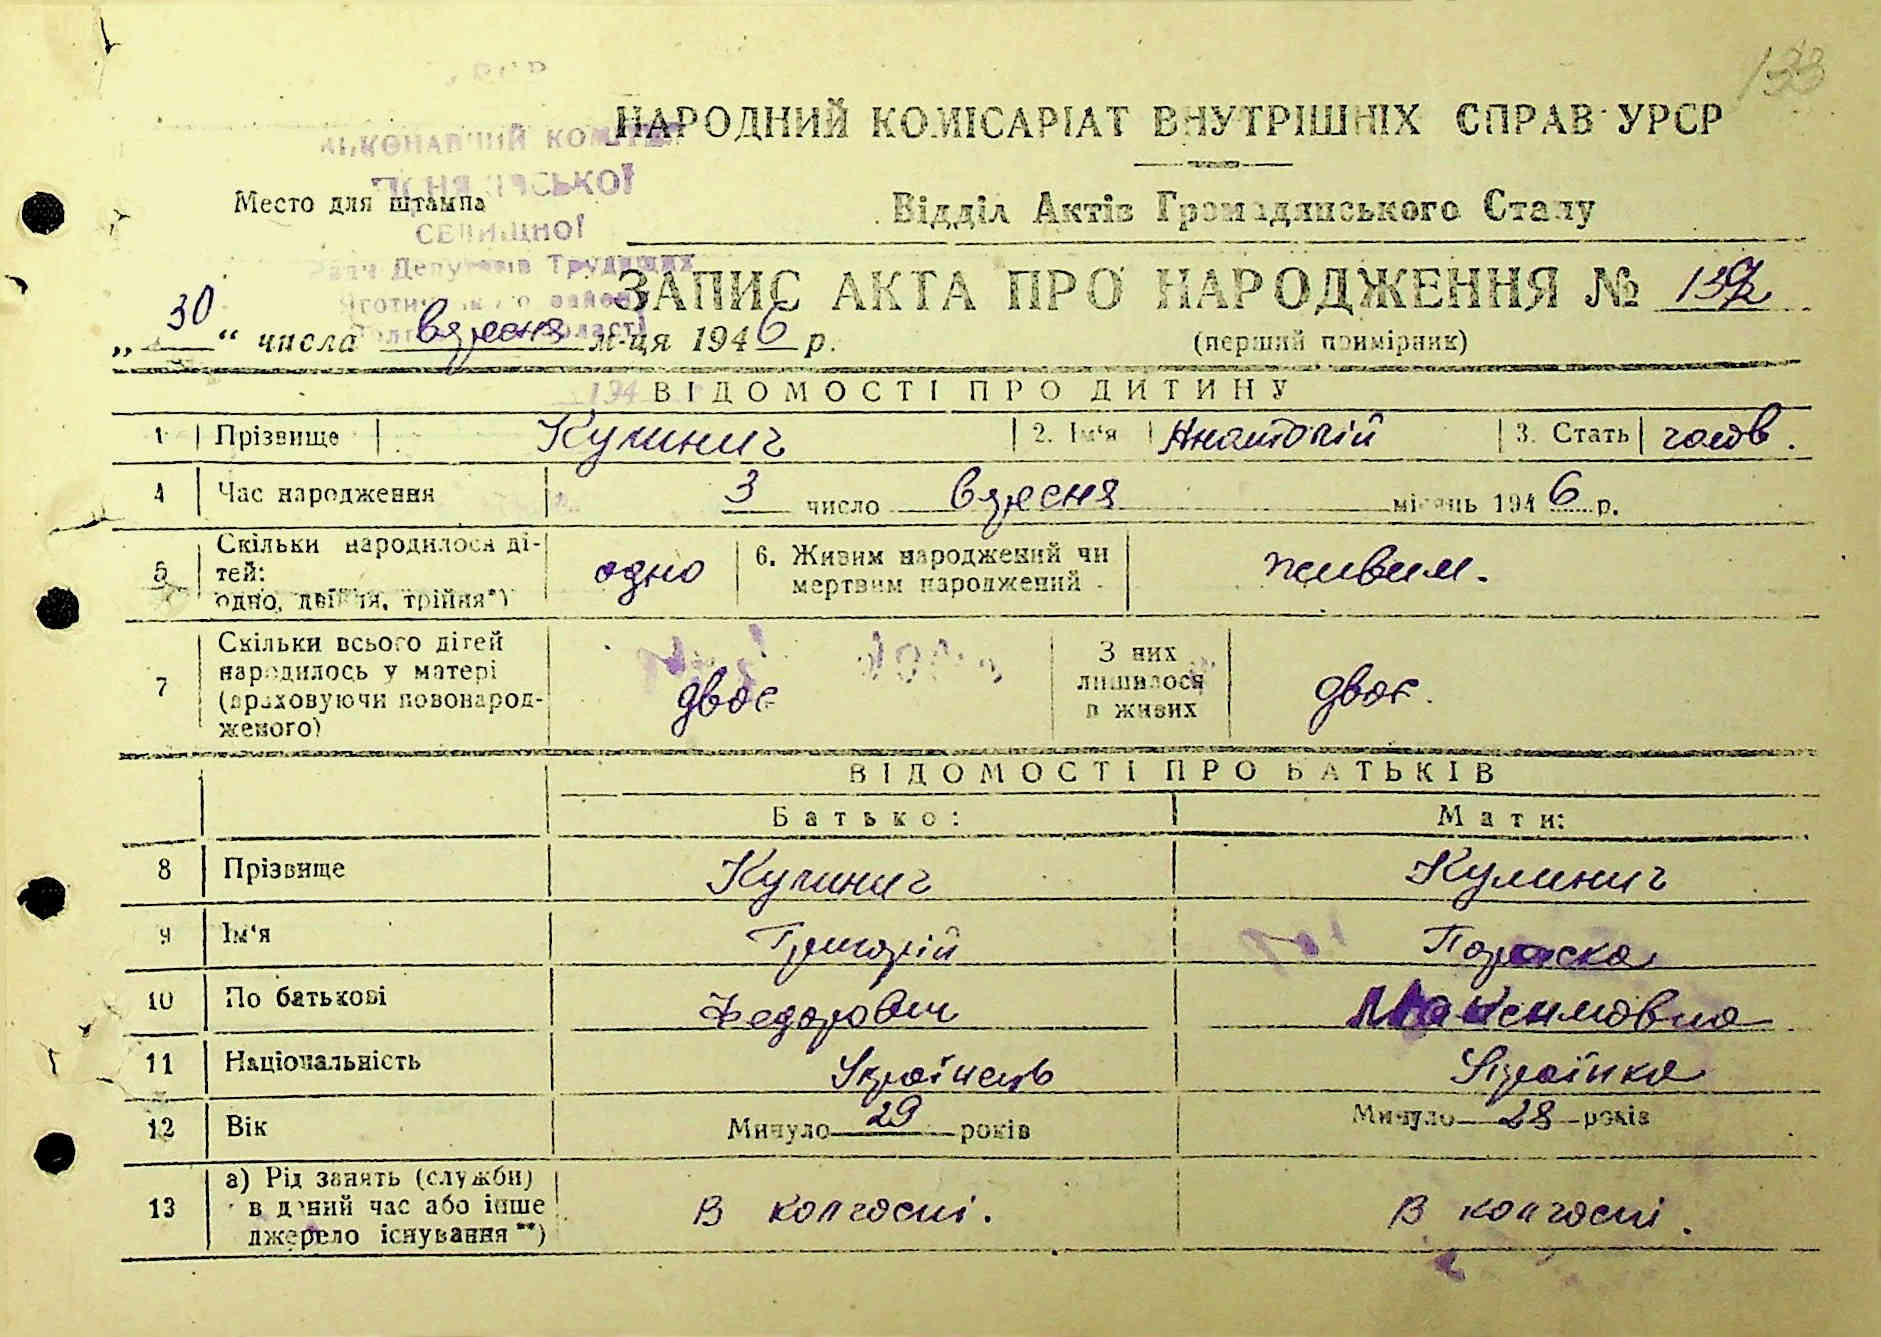 133
НАРОДНИЙ КОМІСАРІАТ ВНУТРІШНІХ СПРАВ УРСР
ВИКОНАВЧИЙ КОМІТЕТ
Место для штампа
Відділ Актів Громадянського Стану
СЕЛИЩНОЇ
Ради Депутатів Трудящих
ЗАПИС АКТА ПРО НАРОДЖЕННЯ №
„30“ числа вересня м-ця 1946 р.
(перший примірник)
194
ВІДОМОСТІ ПРО ДИТИНУ
1 Прізвище Кулинич 2. Ім'я Анатолій 3. Стать чолов.
4 Час народження 3 число вересня місяць 1946 р.
5 Скільки народилося ді-
тей:
одно, двійня, трійня*) одно 6. Живим народжений чи
мертвим народжений живим.
7 Скільки всього дітей
народилось у матері
(враховуючи новонарод-
женого) двоє З них
лишилося
в живих двоє.
ВІДОМОСТІ ПРО БАТЬКІВ
Батько: Мати:
8 Прізвище Кулинич Кулинич
9 Ім'я Григорій Параска
10 По батькові Федорович Максимовна
11 Національність Українець Українка
12 Вік Минуло 29 років Минуло 28 років
13 а) Рід занять (служби)
в даний час або інше
джерело існування**) В колгоспі. В колгоспі.